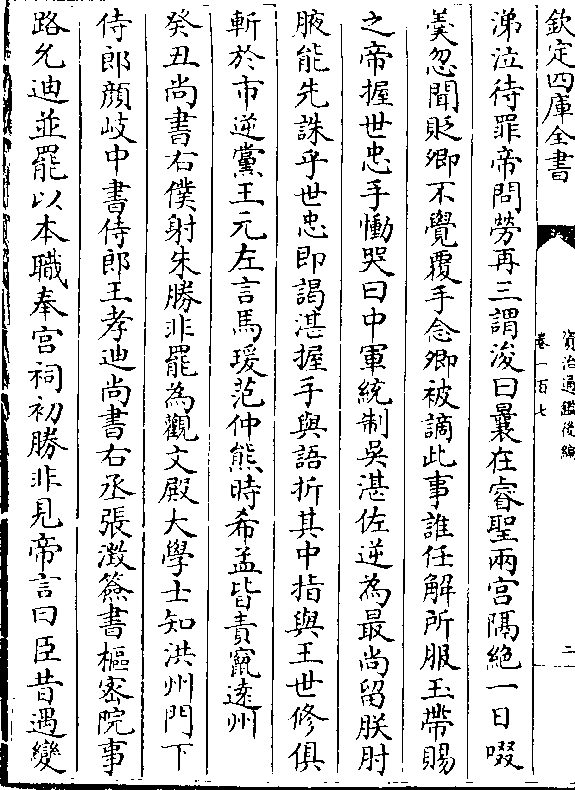 欽定四庫全書
資治通鑑後編
卷一百七
二
涕泣待罪帝問勞再三謂浚曰曩在睿聖兩宮隔絶一日啜
羮忽聞貶卿不覺覆手念卿被謫此事誰任解所服玉帶賜
之帝握世忠手慟哭曰中軍統制吳湛佐逆為最尚留朕肘
腋能先誅乎世忠即謁湛握手與語折其中指與王世修俱
斬於市逆黨王元左言馬瑗范仲熊時希孟皆責竄遠州
癸丑尚書右僕射朱勝非罷為觀文殿大學士知洪州門下
侍郎顔岐中書侍郎王孝迪尚書右丞張澂簽書樞密院事
路允迪並罷以本職奉宫祠初勝非見帝言曰臣昔遇變